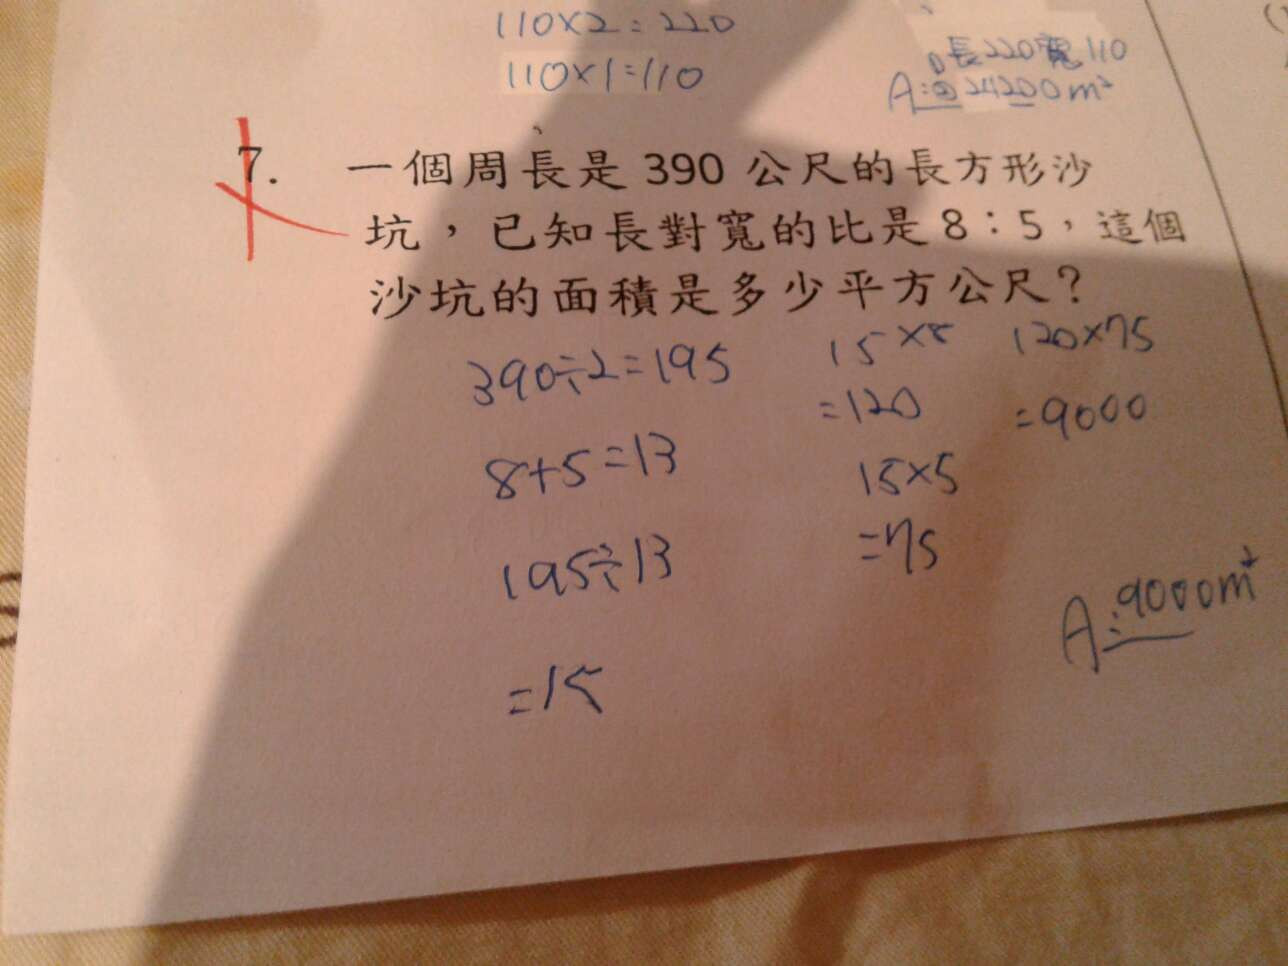 110×2=220
110×1=110
長220寬110
A:24200m²
7. 一個周長是 390 公尺的長方形沙
坑,已知長對寬的比是 8:5,這個
沙坑的面積是多少平方公尺?
390÷2=195
8+5=13
195÷13
=15
15×8
=120
15×5
=75
120×75
=9000
A:9000m²